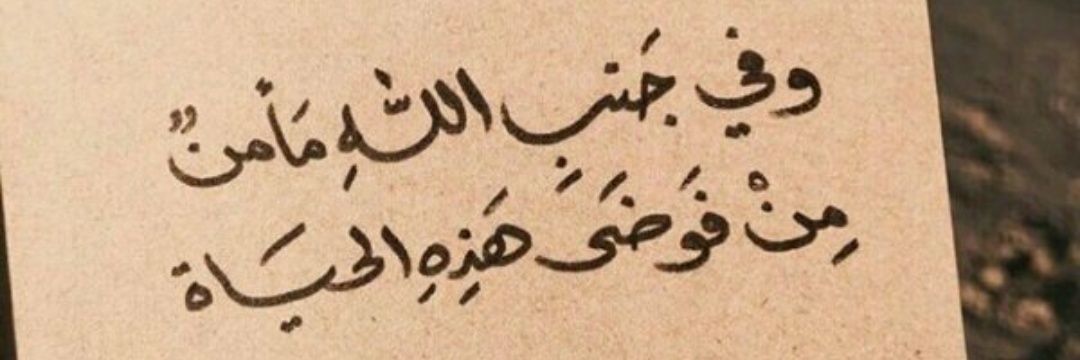 وفي جَنبِ اللَّهِ مَأمنٌ
مِنْ فَوَضَى هَذِهِ الحيَاة